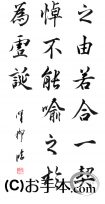 之由若合一契
悼不能喻之於
為虚誕
(C)お手本.com